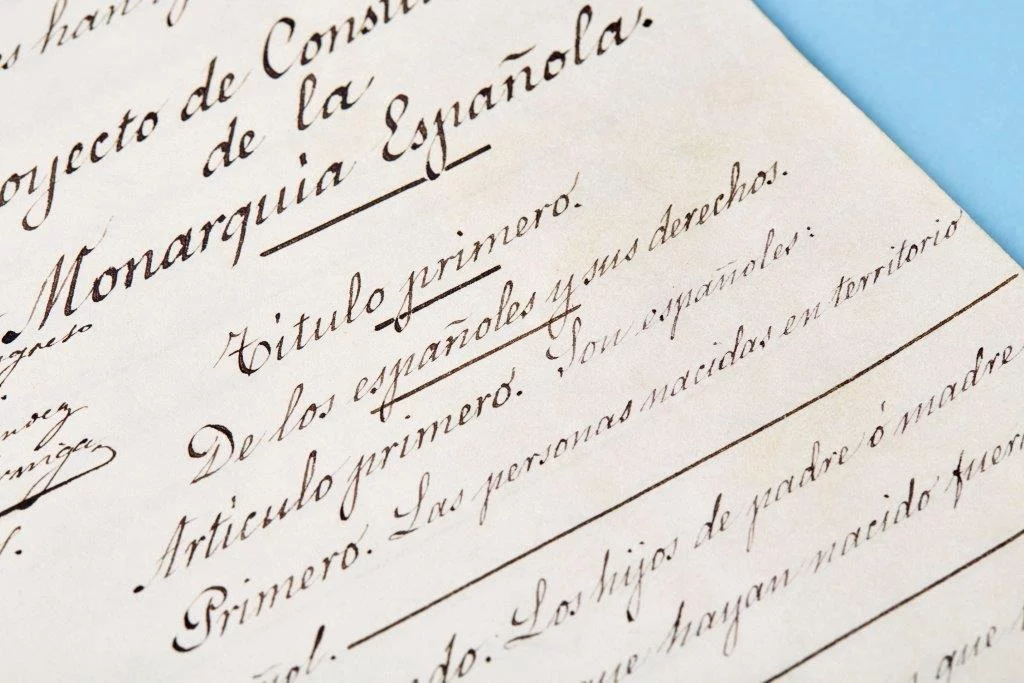 es han
oyecto de Constit
de la
Monarquia Española.
Título primero.
De los españoles y sus derechos.
Artículo primero. Son españoles:
Primero. Las personas nacidas en territorio
ñol.
do. Los hijos de padre ó madre
que hayan nacido fuera
que